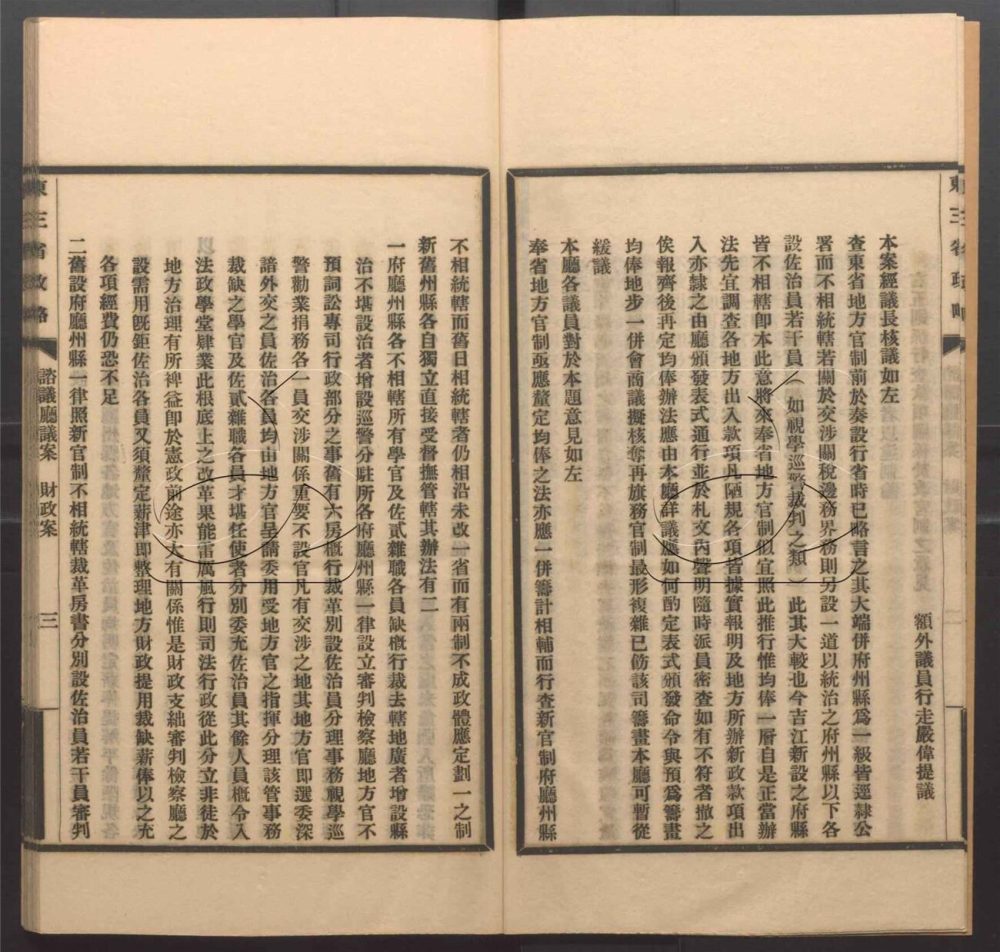 東三省政略
額外議員行走嚴偉提議
本案經議長核議如左
查東省地方官制前於奏設行省時已略言之其大端併府州縣爲一級皆逕隸公
署而不相統轄若關於交涉關稅邊務界務則另設一道以統治之府州縣以下各
設佐治員若干員(如視學巡警裁判之類)此其大較也今吉江新設之府縣
皆不相轄卽本此意將來奉省地方官制似宜照此推行惟均俸一層自是正當辦
法先宜調查各地方出入款項凡陋規各項皆據實報明及地方所辦新政款項出
入亦隸之由廳頒發表式通行並於札文內聲明隨時派員密查如有不符者撤之
俟報齊後再定均俸辦法應由本廳詳議應如何酌定表式頒發命令與預爲籌畫
均俸地步一併會商議擬核奪再旗務官制最形複雜已飭該司籌畫本廳可暫從
緩議
本廳各議員對於本題意見如左
奉省地方官制亟應釐定均俸之法亦應一併籌計相輔而行查新官制府廳州縣
不相統轄而舊日相統轄者仍相沿未改一省而有兩制不成政體應定劃一之制
新舊州縣各自獨立直接受督撫管轄其辦法有二
一府廳州縣各不相轄所有學官及佐貳雜職各員缺槪行裁去轄地廣者增設縣
治不堪設治者增設巡警分駐所各府廳州縣一律設立審判檢察廳地方官不
預詞訟專司行政部分之事舊有六房槪行裁革別設佐治員分理事務視學巡
警勸業捐務各一員交涉關係重要不設官凡有交涉之地其地方官卽選委深
諳外交之員佐治各員均由地方官呈請委用受地方官之指揮分理該管事務
裁缺之學官及佐貳雜職各員才堪任使者分別委充佐治員其餘人員槪令入
法政學堂肄業此根底上之改革果能雷厲風行則司法行政從此分立非徒於
地方治理有所裨益卽於憲政前途亦大有關係惟是財政支絀審判檢察廳之
設需用旣鉅佐治各員又須釐定薪津卽整理地方財政提用裁缺薪俸以之充
各項經費仍恐不足
二舊設府廳州縣一律照新官制不相統轄裁革房書分別設佐治員若干員審判
東三省政略
諮議廳議案 財政案
三